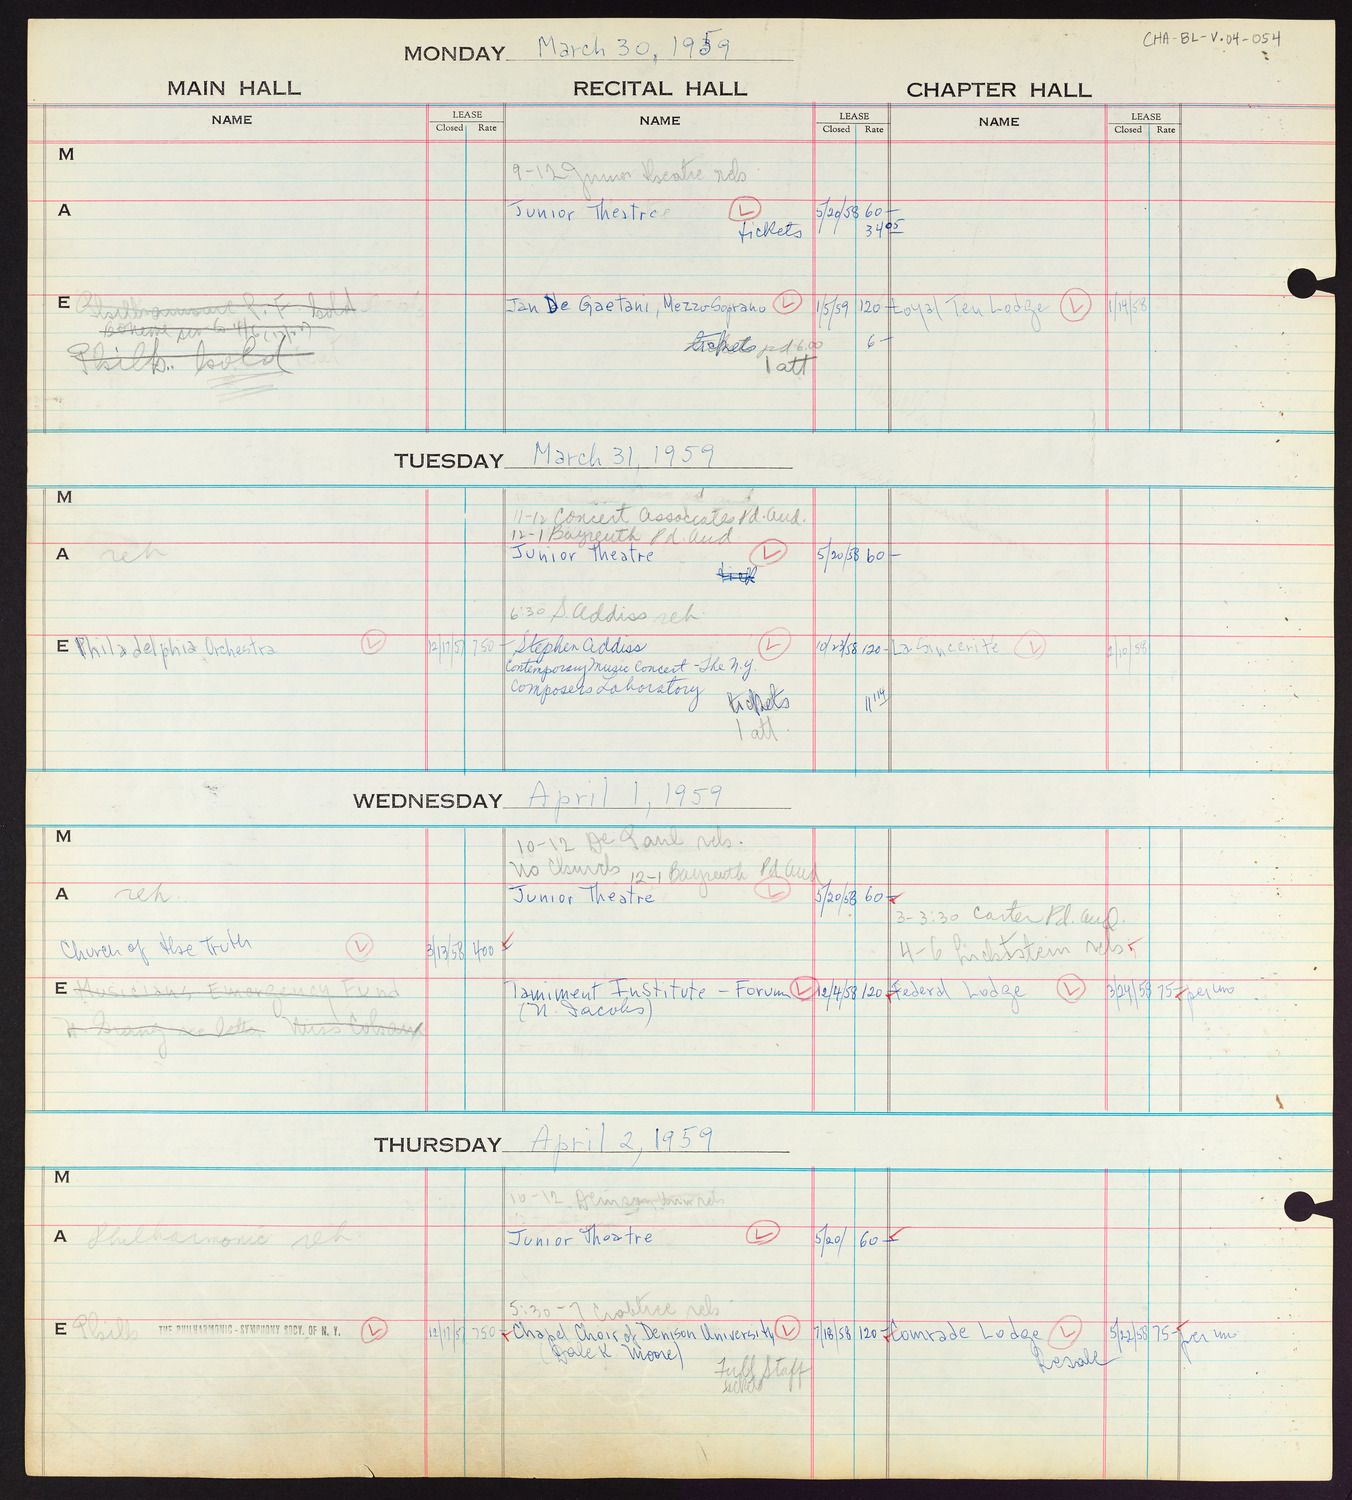 CHA-BL-V.04-054
MONDAY March 30, 1959
MAIN HALL RECITAL HALL CHAPTER HALL
NAME LEASE Closed Rate NAME LEASE Closed Rate NAME LEASE Closed Rate
M
9-12 Junior theatre reh
A Junior Theatre L 5/20/58 60—
tickets 34 05
E hold Jan De Gaetani, Mezzo-Soprano L 1/5/59 120— Loyal Ten Lodge L 1/19/58
tickets pd 6.00 6—
Phil. hold 1 att
TUESDAY March 31, 1959
M
11-12 Concert Associates Pd. Aud.
12-1 Bayreuth Pd. Aud
A reh Junior Theatre L 5/20/58 60—
6:30 S. Addiss reh.
E Philadelphia Orchestra L 12/17/57 750— Stephen Addiss L 10/23/58 120— La Sincerite L 2/10/58
Contemporary Music Concert - The N.Y.
Composers Laboratory
tickets 11 14
1 att.
WEDNESDAY April 1, 1959
M
10-12 De Paul reh.
No Church 12-1 Bayreuth Pd Aud
A reh. Junior Theatre L 5/20/58 60—
3-3:30 Carter Pd. Aud.
Church of the Truth L 3/13/58 400 4-6 reh
E Musicians Emergency Fund Tamiment Institute - Forum L 12/4/58 120— Federal Lodge L 3/24/58 75— per mo
(N. Jacobs)
Miss
THURSDAY April 2, 1959
M
10-12 Denison reh
A Philharmonic reh Junior Theatre L 5/20/ 60—
5:30-7 Crabtree reh
E Phil THE PHILHARMONIC-SYMPHONY SOCY. OF N. Y. L 12/17/57 750— Chapel Choir of Denison University L 7/18/58 120— Comrade Lodge L 5/22/58 75— per mo
(Dale K Moore) Resale
Full Staff
tickets